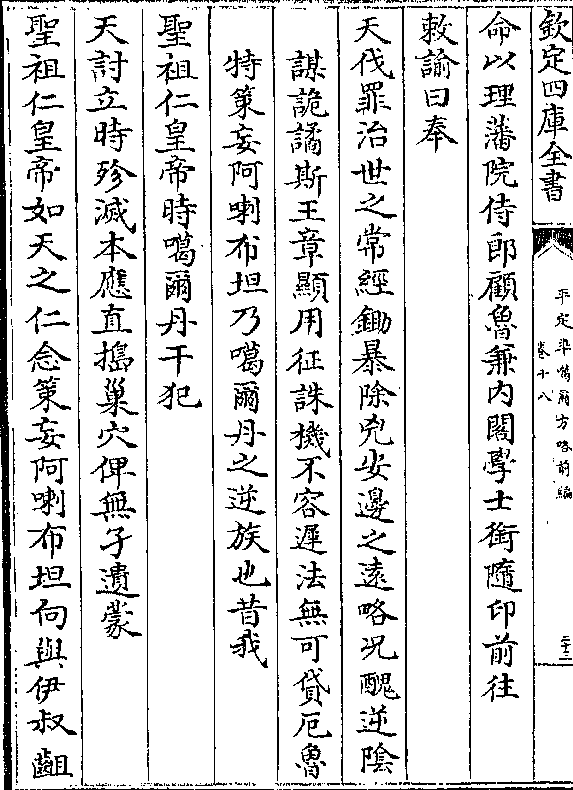 欽定四庫全書
平定準噶爾方略前編
卷十八
二十三
命以理藩院侍郎顧魯兼內閣學士銜隨印前往
敕諭曰奉
天伐罪治世之常經鋤暴除兇安邊之遠略况醜逆陰
謀詭譎斯王章顯用征誅機不容遲法無可貸厄魯
特策妄阿喇布坦乃噶爾丹之逆族也昔我
聖祖仁皇帝時噶爾丹干犯
天討立時殄滅本應直搗巢穴俾無孑遺蒙
聖祖仁皇帝如天之仁念策妄阿喇布坦向與伊叔齟